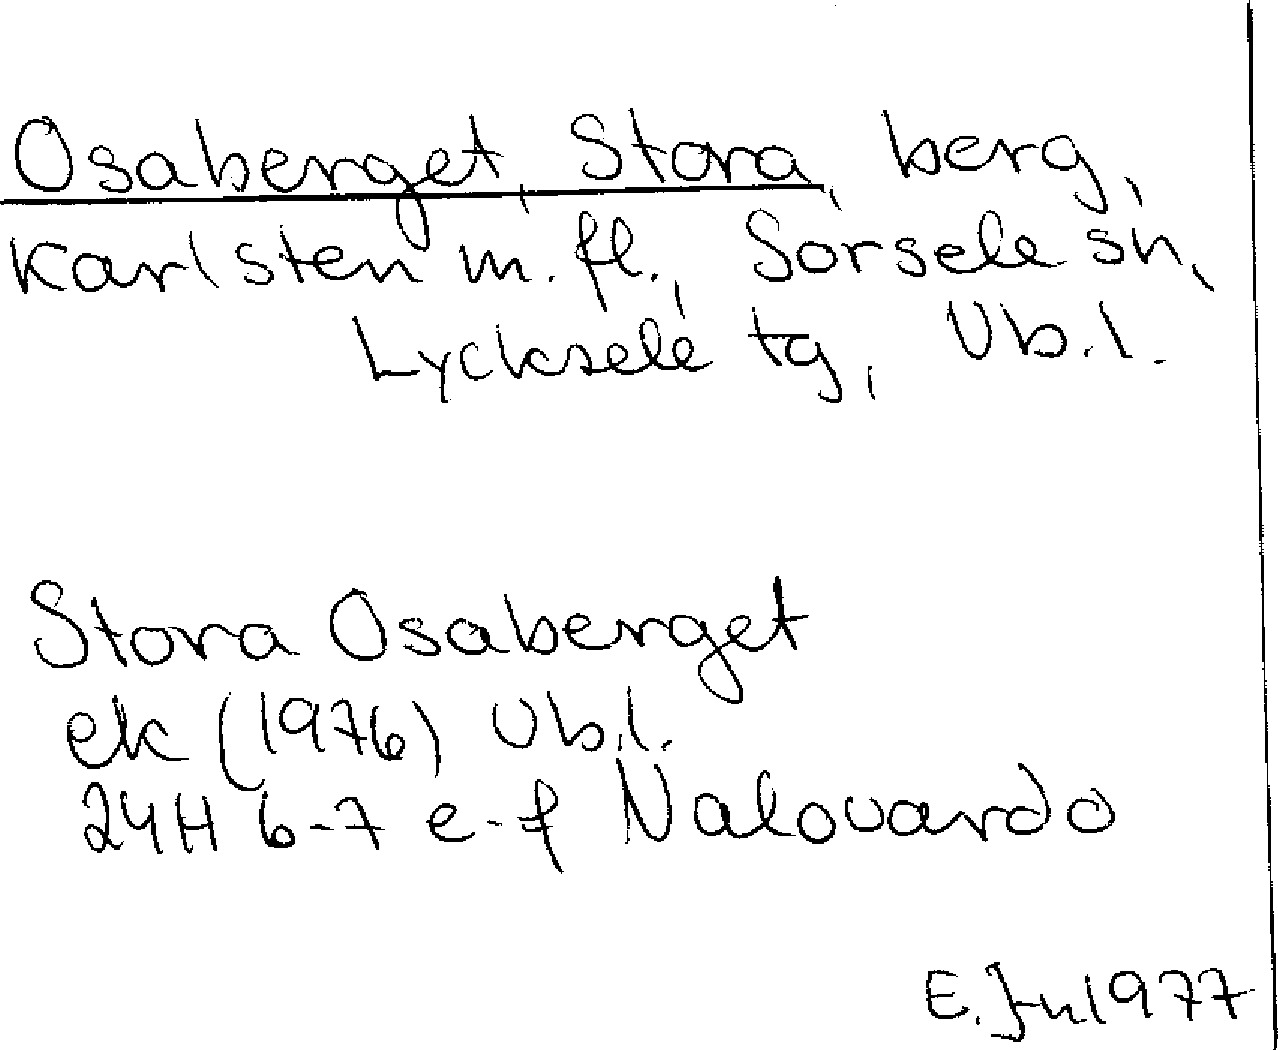 Osaberget, Stora, berg,
Karlsten m.fl., Sorsele sn,
Lycksele tg, Vb.l.
Stora Osaberget
ek (1976) Vb.l.
24H 6-7 e-f Nalovardo
E. Jn 1977